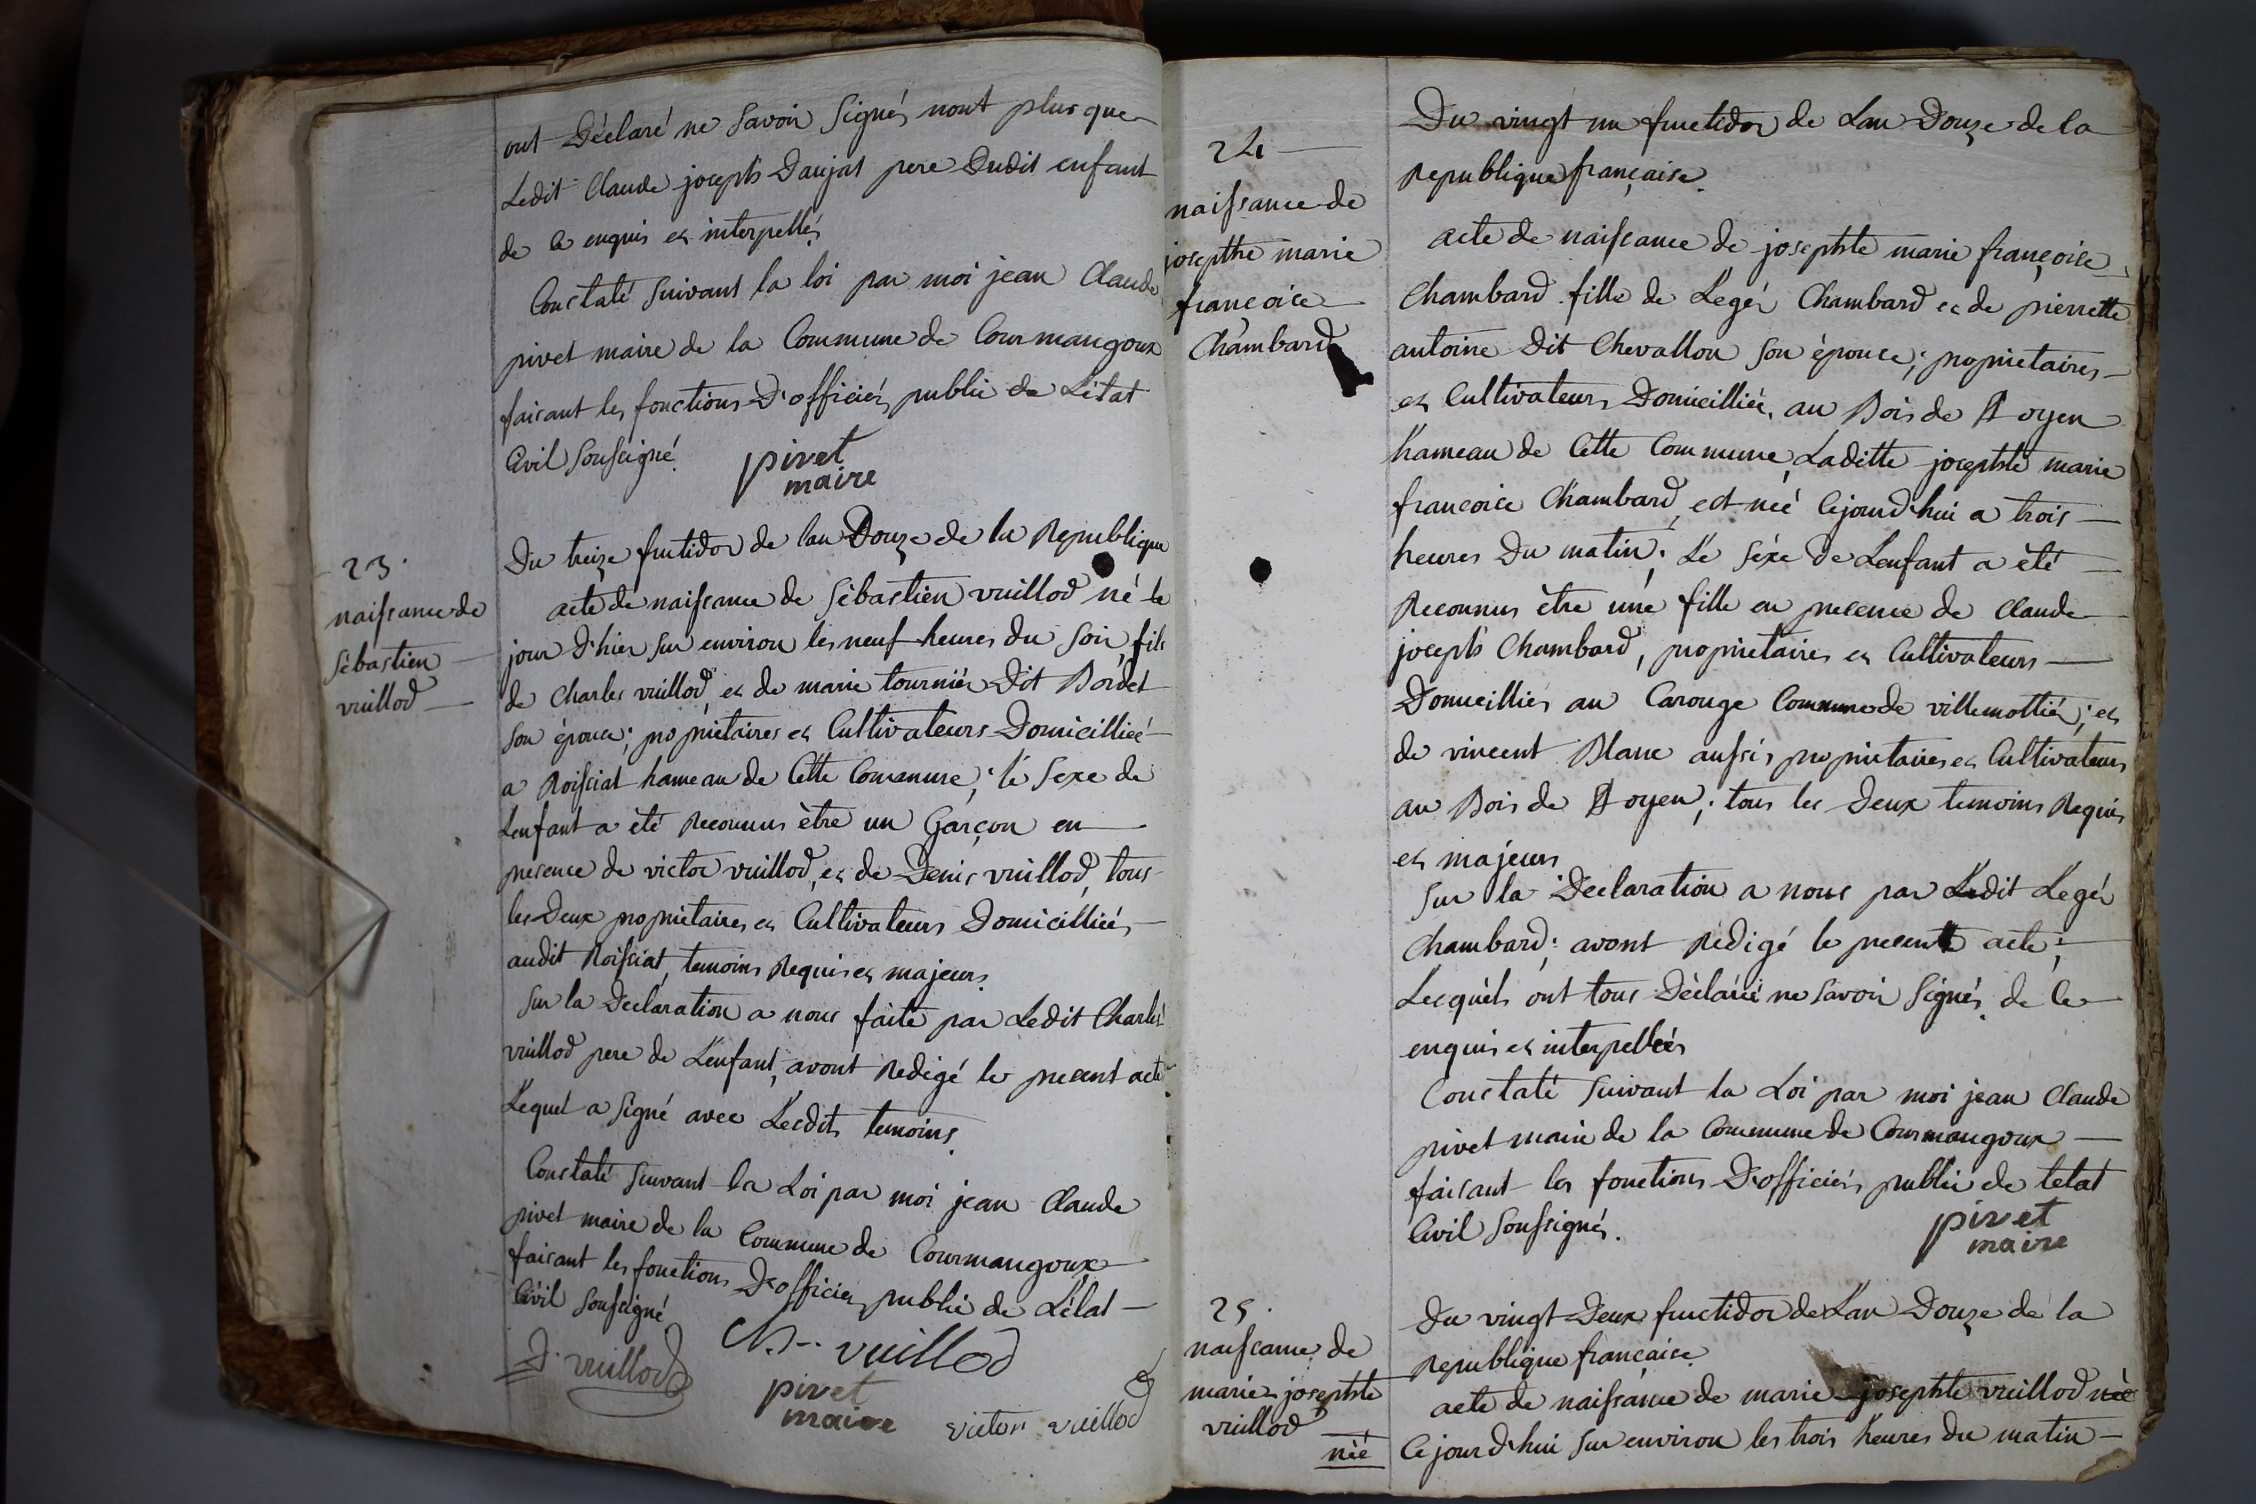 ont Déclaré ne savoir signés nont plus que
Ledit Claude joseph Daujat pere Dudit enfant
de ce enquis et interpellé,
Constaté suivant la loi par moi jean Claude
pivet maire de la Commune de Courmangoux
faisant les fonctions D'officiér public de L'état
Civil soussigné.
pivet
maire
23.
naissance de
sébastien
vuillod
Du treize fructidor de lan Douze de la Republique
acte de naissance de sébastien vuillod né le
jour d'hier sur environ les neuf heures du soir, fils
de Charles vuillod et de marie tourniér Dit Bordet
son épouse; propriétaires et Cultivateurs Domicilliés
a Roissiat hameau de Cette Commune; le sexe de
Lenfant a été Reconnus être un Garçon en
presence de victor vuillod, et de Denis vuillod, tous
les Deux propriétaires et Cultivateurs Domicilliés
audit Roissiat, temoins Requis et majeurs.
sur la Declaration a nous faite par Ledit Charles
vuillod pere de L'enfant, avont Redigé le present acte
Lequel a signé avec Lesdits temoins.
Constaté suivant la Loi par moi jean Claude
pivet maire de la Commune de Courmangoux
faisant les fonctions D'officier public de L'état
Civil soussigné
D. vuillod
Ch.. vuillod
pivet
maire
victor vuillod
24
naissance de
josephte marie
francoise
Chambard
Du vingt un fructidor de Lan Douze de la
Republique française.
acte de naissance de josephte marie françoise
Chambard fille de Legér Chambard et de pierrette
antoine Dit Chevallon son épouse; propriétaires
et Cultivateurs Domicilliés, au Bois de Royen
hameau de Cette Commune, Laditte josephte marie
francoise Chambard, est néé Cejourd'hui a trois
heures Du matin; Le séxe de Lenfant a été
Reconnus être une fille en presence de Claude
joseph Chambard, propriétaires et Cultivateurs
Domicilliés au Carouge Commune de villemottiér; et
de vincent Blanc aussis propriétaires et Cultivateurs
au Bois de Royen; tous les Deux temoins Requis
et majeurs
sur la Declaration a nous par Ledit Legér
Chambard; avont Rédigé le present acte;
Lesquels ont tous Déclaré ne savoir signés de ce
enquis et interpellés
Constaté suivant la Loi par moi jean Claude
pivet maire de la Commune de Courmangoux
faisant les fonctions D'officiér public de letat
Civil soussigné.
pivet
maire
25.
naissance de
marie josephte
vuillod
néé
Du vingt Deux fructidor de L'an Douze de la
Republique française.
acte de naissance de marie josephte vuillod néé
Cejourd'hui sur environ les trois heures du matin